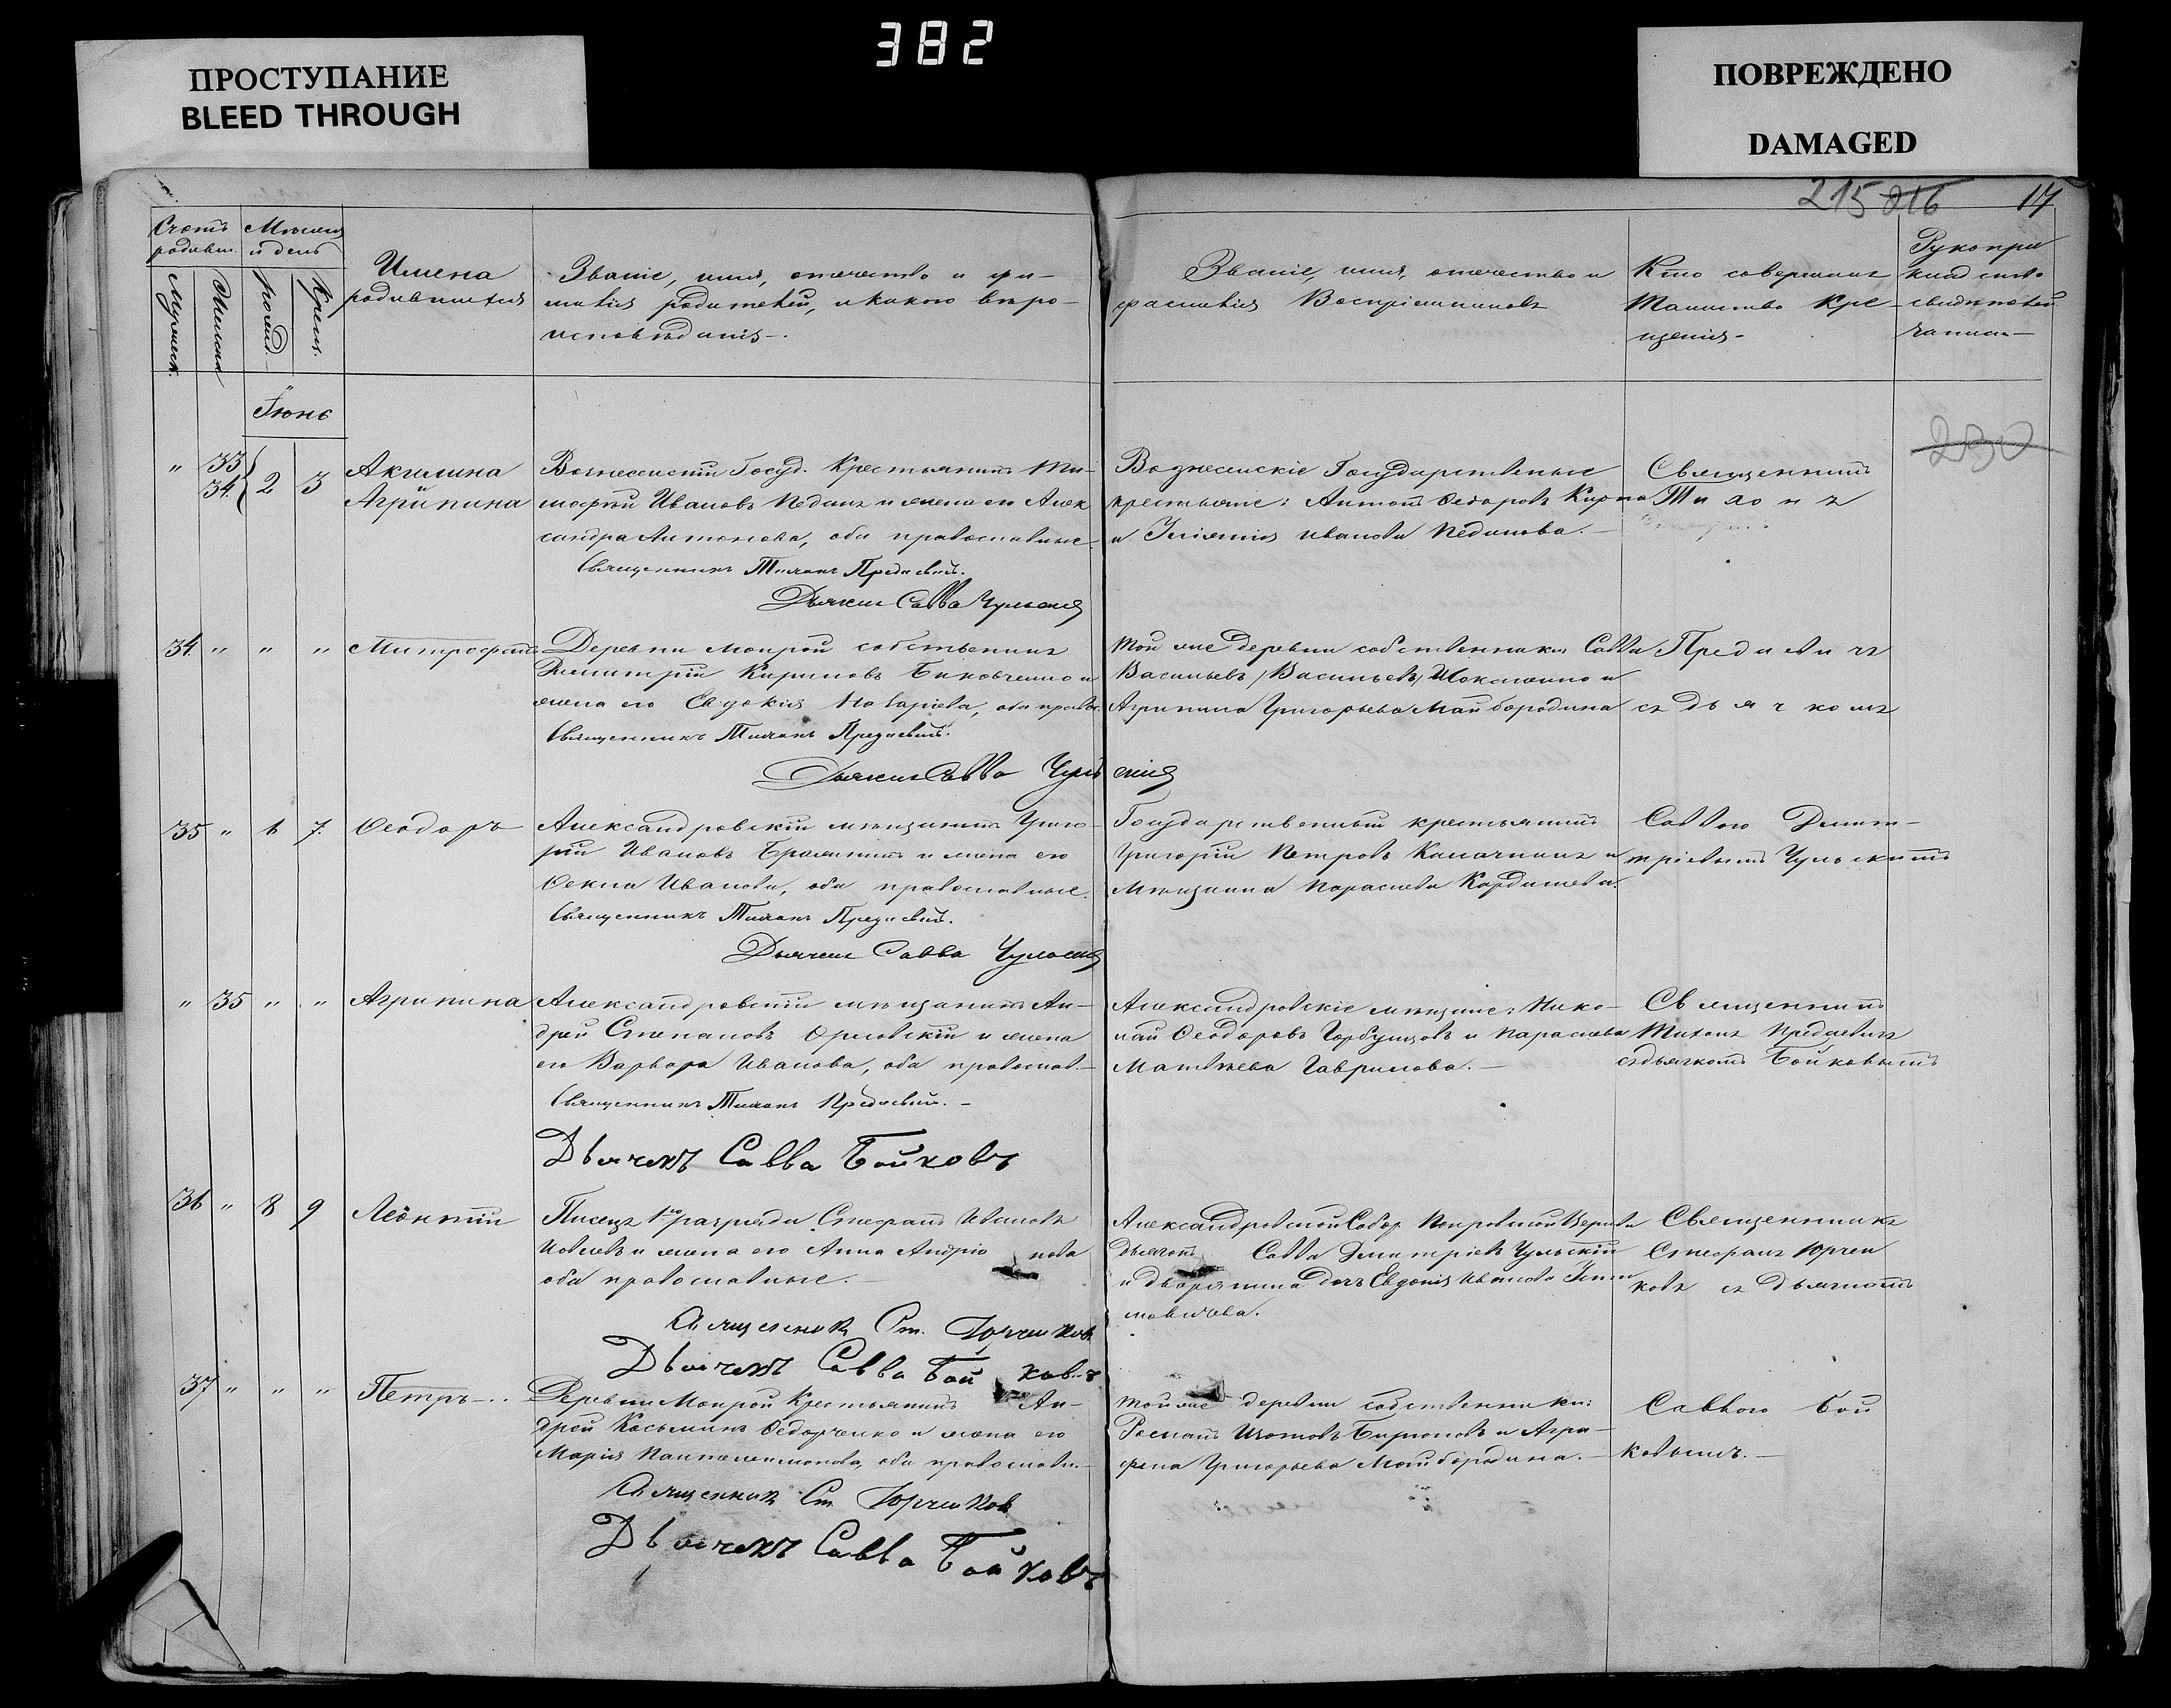 382
ПРОСТУПАНИЕ
BLEED THROUGH
ПОВРЕЖДЕНО
DAMAGED
215 216 17
Счетъ родивш.
Мѣсяцъ и день
Мужеск.
Женск.
рожд.
Крещ.
Имена
родившихся
Званіе, имя, отечество и фа-
милія родителей, и какого вѣро-
исповѣданія.
Званіе, имя, отечество и
фамилія Воспріемниковъ
Кто совершалъ
Таинство Кре-
щенія
Рукопри
кладство
свидѣтелей
записи
Іюнь
230
" 33 34 2 3
Акилина
Агрипина
Вознесенскій Госуд. Крестьянинъ Ти-
мофей Ивановъ Педанъ и жена его Алек
сандра Антонова, оба православные
Священникъ Тихонъ Предаевичъ.
Дьячекъ Савва Чульскій
Вознесенскіе Государственные
крестьяне: Антонъ Федоровъ
и Иванова Педанова.
Священникъ
Тихонъ
34 " " "
Митрофанъ
Деревни Мокрой собственникъ
Димитрій Кириловъ и
жена его Евдокія оба правос.
Священникъ Тихонъ Предаевичъ.
Дьячекъ Савва Чульскій
Той же деревни собственники Савва
Васильевъ /Васильевъ/ и
Агрипина Григорьева Майбородина
Предаевичъ
съ дьячкомъ
35 " 6 7
Феодоръ
Александровскій мѣщанинъ Григо-
рій Ивановъ и жена его
Фекла Иванова, оба православные.
Священникъ Тихонъ Предаевичъ.
Дьячекъ Савва Чульскій
Государственный крестьянинъ
Григорій Петровъ Калачникъ и
Мѣщанка Параскева Кардашева.
Саввою Димит-
ріевымъ Чульскимъ
" 35 " "
Агрипина
Александровскій мѣщанинъ Ан-
дрей Степановъ Орловскій и жена
его Варвара Иванова, оба православ.
Священникъ Тихонъ Предаевичъ.
Дьячекъ Савва Бойковъ
Александровскіе мѣщане: Нико-
лай Феодоровъ Горбунцовъ и Параскева
Матвѣева Гаврилова.
Священникъ
Тихонъ Предаевичъ
съ дьячкомъ Бойковымъ
36 " 8 9
Леонтій
Писецъ 1го разряда Стефанъ Ивановъ
и жена его Анна
оба православные.
Священникъ Ст. Юрченковъ
Дьячекъ Савва Бойковъ
Александровской Собор. Покровской Церкви
дьячокъ Савва Димитріевъ Чульскій
и дворянина дочь Евдокія Иванова
Священникъ
Стефанъ Юрчен
ковъ съ дьячкомъ
37 " " "
Петръ
Деревни Мокрой Крестьянинъ Ан-
дрей Косьминъ Федорченко и жена его
Марія Пантелеимонова, оба православн.
Священникъ Ст. Юрченковъ
Дьячекъ Савва Бойковъ
Той же деревни собственники:
Романъ Бирюковъ и Агра-
фена Григорьева Майбородина.
Саввою Бой
ковымъ.